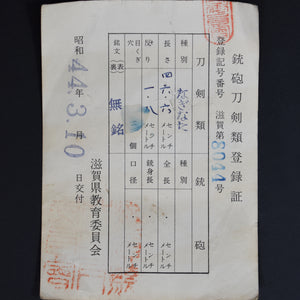 銃砲刀剣類登録証
登録記号番号 滋賀第8044号
刀剣類 銃砲
種別 なぎなた 種別
長さ 四六・六 センチメートル 全長 センチメートル
反り 一・八 センチメートル 銃身長 センチメートル
目くぎ穴 個 口径 センチメートル
銘文 (表 裏) 無銘
昭和44年3月10日交付
滋賀県教育委員会